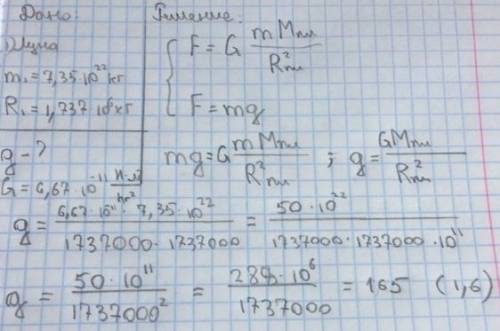 Дано:
Луна
m₁ = 7,35·10²² кг
R₁ = 1,737
g - ?
G = 6,67·10⁻¹¹ Н·м²/кг²
Решение:
F = G mMпл/R²пл
F = mg
mg = G mMпл/R²пл ; g = GMпл/R²пл
g = 6,67·10¹¹·7,35·10²²/1737000·1737000 = 50·10²²/1737000·1737000·10¹¹
g = 50·10¹¹/1737000² = 288·10⁶/1737000 = 165 (1,6)